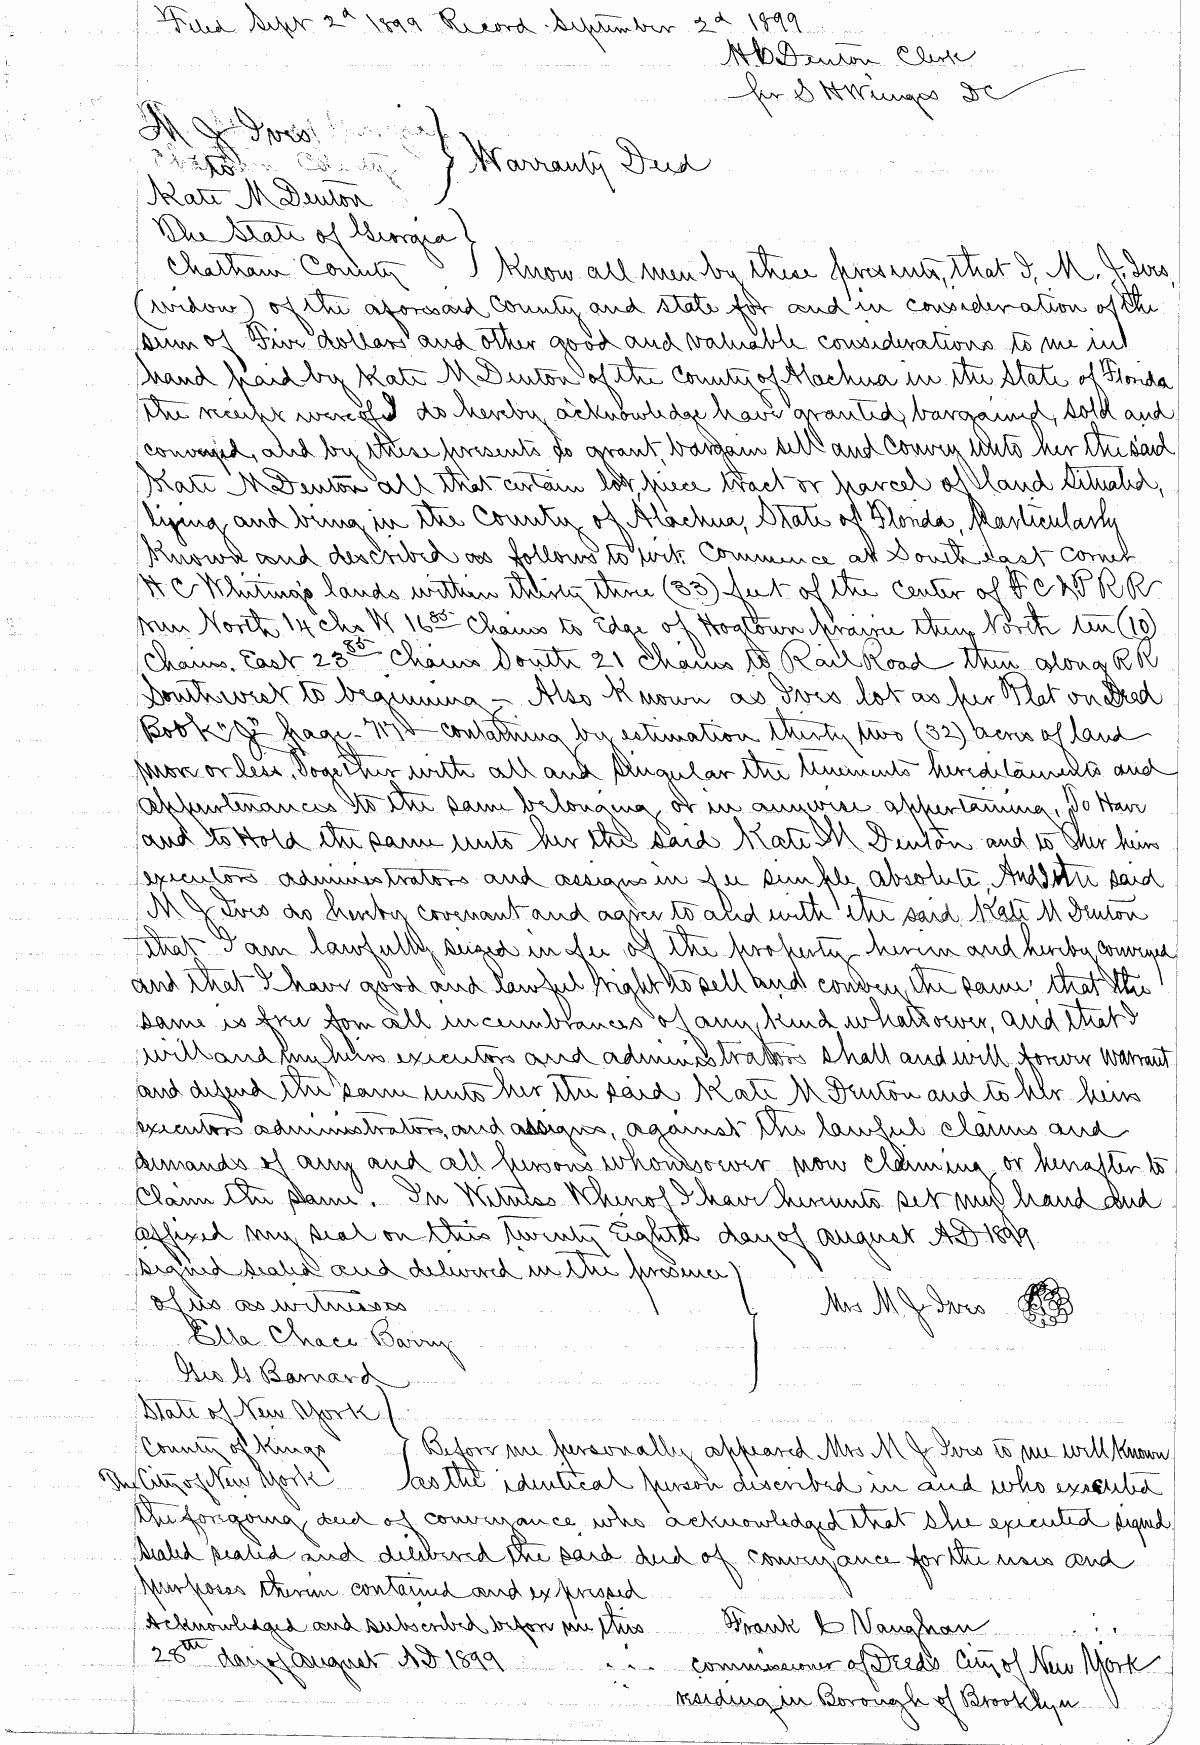 Filed Sept 2d 1899 Record September 2d 1899
H C Denton Clerk
per S H Wienges DC
M J Ives
to
Warranty Deed
Kate M Denton
The State of Georgia
Chatham County Know all men by these presents, that I, M. J. Ives,
(widow) of the aforesaid County and State for and in consideration of the
sum of Five dollars and other good and valuable considerations to me in
hand paid by Kate M Denton of the County of Alachua in the State of Florida
the receipt wereof I do hereby acknowledge have granted, bargained, sold and
conveyed, and by these presents do grant, bargain sell and convey unto her the said
Kate M Denton all that certain lot, piece tract or parcel of land situated,
lying and being in the County of Alachua, State of Florida, particularly
known and described as follows to wit: Commence at South east corner
H C Whiting's lands within thirty three (33) feet of the center of F C & P R R
run North 14 chs W 16 85 Chains to Edge of Hogtown prairie then North ten (10)
Chains. East 23 85 Chains South 21 Chains to Rail Road then along R R
Southwest to beginning - Also Known as Ives lot as per Plat on Deed
Book "J" page containing by estimation thirty two (32) acres of land
more or less, Together with all and singular the tenements hereditaments and
appurtenances to the same belonging or in anywise appertaining, To Have
and to Hold the same unto her the said Kate M Denton and to her heirs
executors administrators and assigns in fee simple absolute, And I the said
M J Ives do hereby covenant and agree to and with the said Kate M Denton
that I am lawfully seized in fee of the property herein and hereby conveyed
and that I have good and lawful right to sell and convey the same, that the
same is free fom all incumbrances of any kind whatsoever, and that I
will and my heirs executors and administrators shall and will forever warrant
and defend the same unto her the said Kate M Denton and to her heirs
executors administrators, and assigns, against the lawful claims and
demands of any and all persons whomsoever now claiming or hereafter to
claim the same. In Witness Whereof I have hereunto set my hand and
affixed my seal on this twenty Eighth day of August AD 1899
signed sealed and delivered in the presence
of us as witnesses Mrs M J Ives
Ella Chace Barry
Geo G Barnard
State of New York
County of Kings Before me personally appeared Mrs M J Ives to me well known
The City of New York as the identical person described in and who executed
the foregoing deed of conveyance who acknowledged that she executed signed
sealed sealed and delivered the said deed of conveyance for the uses and
purposes therein contained and expressed
Acknowledged and subscribed before me this Frank L Vaughan
28th day of August AD 1899 commissioner of Deeds City of New York
residing in Borough of Brooklyn